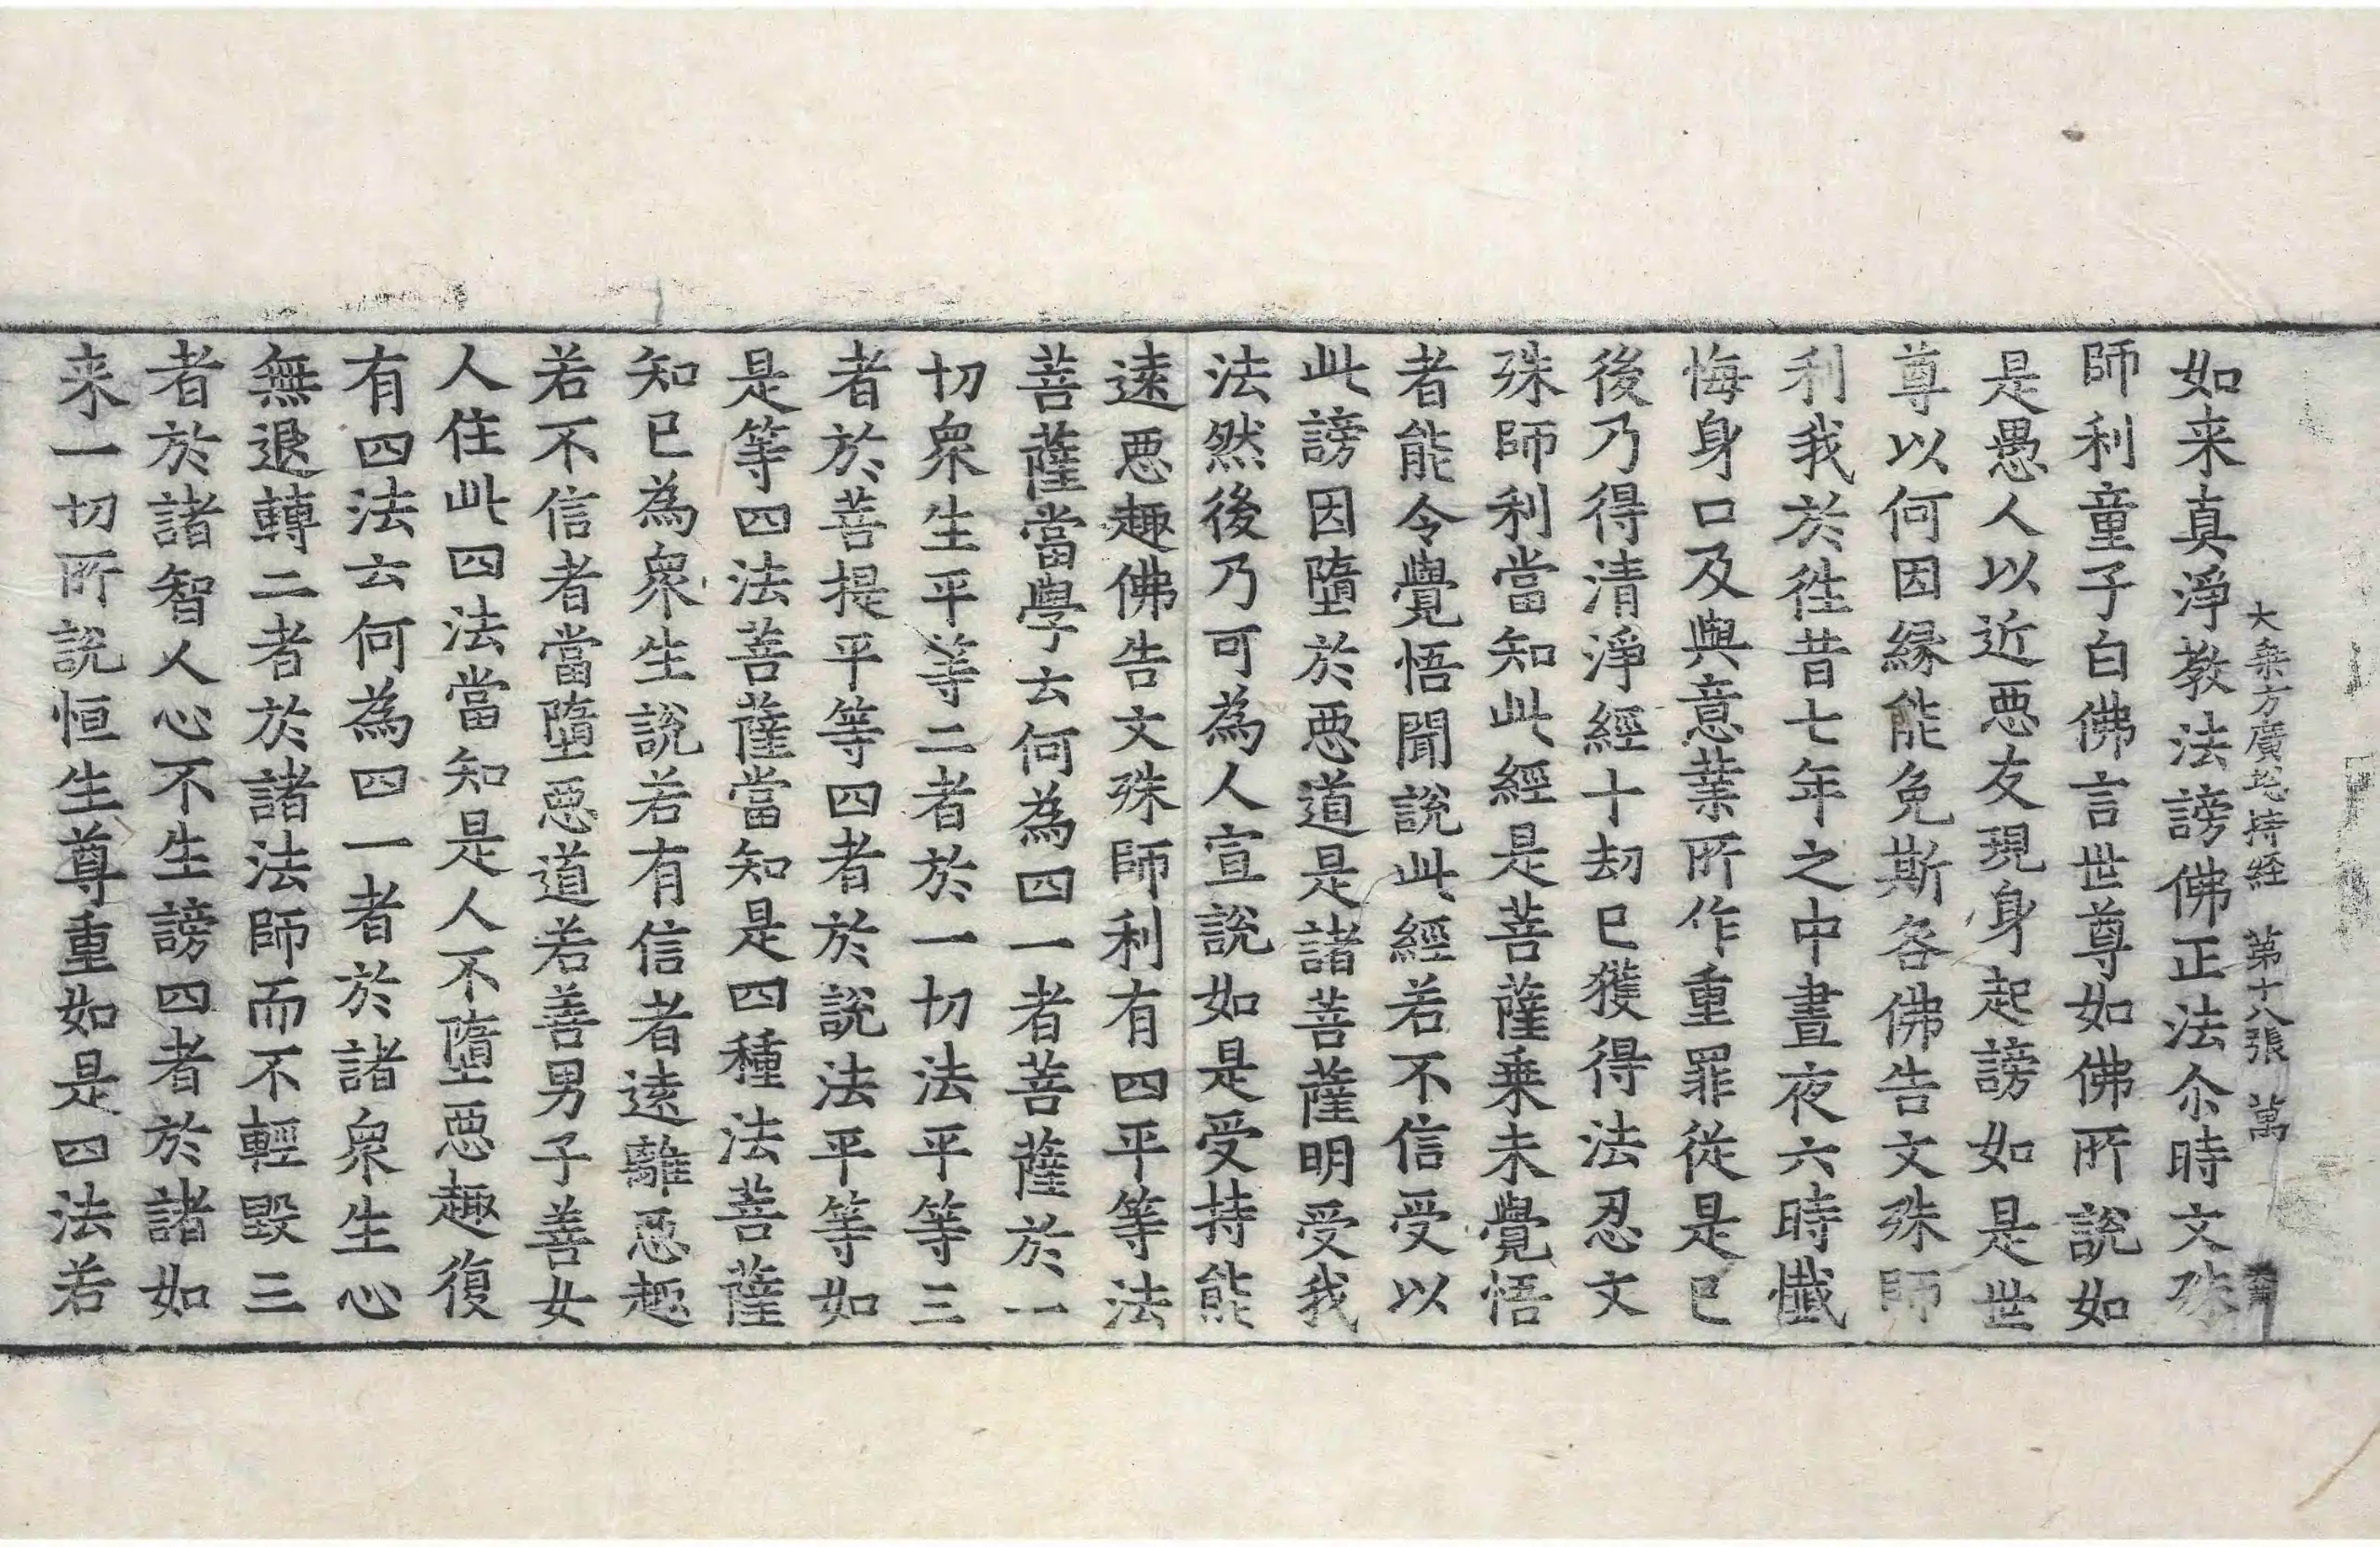 大乗方廣捴持経 第十八張 萬
如来真淨教法謗佛正法尒時文殊
師利童子白佛言世尊如佛所說如
是愚人以近惡友現身起謗如是世
尊以何因緣能免斯咎佛告文殊師
利我於徃昔七年之中晝夜六時懺
悔身口及與意業所作重罪從是已
後乃得清淨經十劫已獲得法忍文
殊師利當知此經是菩薩乗未覺悟
者能令覺悟聞說此經若不信受以
此謗因墮於惡道是諸菩薩明受我
法然後乃可為人宣說如是受持能
遠惡趣佛告文殊師利有四平等法
菩薩當學云何為四一者菩薩於一
切衆生平等二者於一切法平等三
者於菩提平等四者於說法平等如
是等四法菩薩當知是四種法菩薩
知已為衆生說若有信者遠離惡趣
若不信者當墮惡道若善男子善女
人住此四法當知是人不墮惡趣復
有四法云何為四一者於諸衆生心
無退轉二者於諸法師而不輕毀三
者於諸智人心不生謗四者於諸如
来一切所說恒生尊重如是四法若